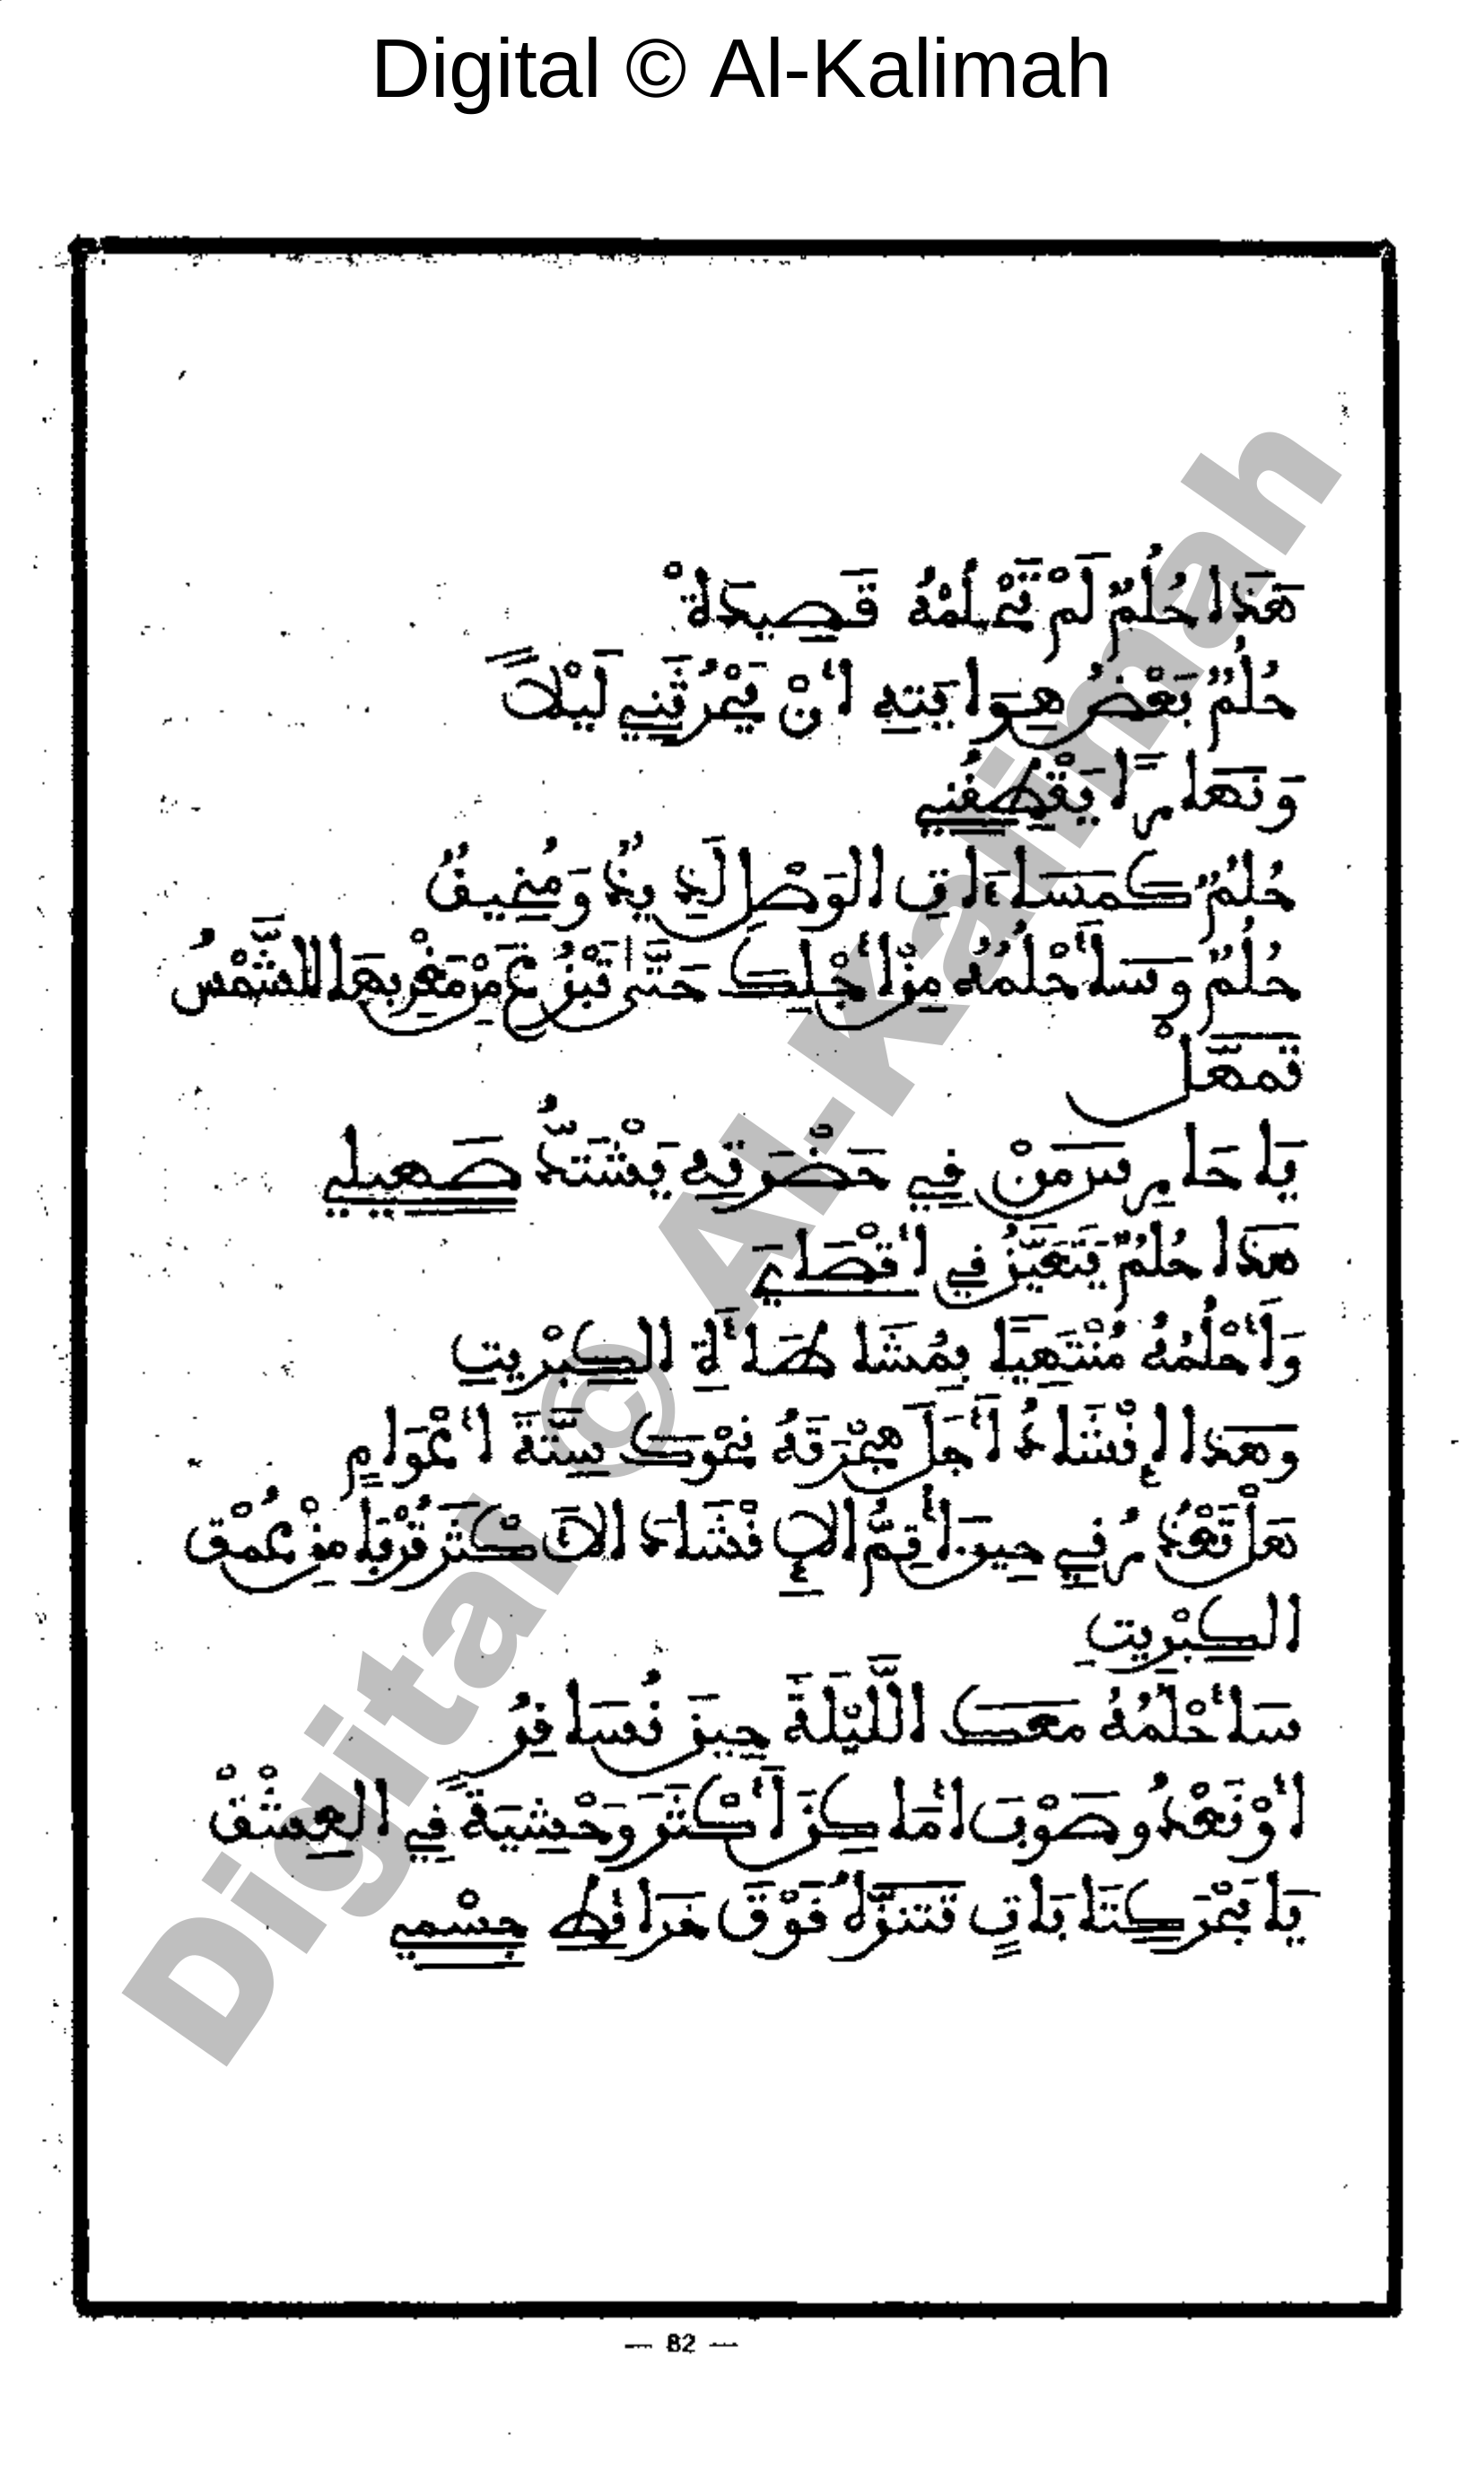 Digital © Al-Kalimah
هَذَا حُلُمٌ لَمْ تَحْلُمْهُ قَصِيدَةْ
حُلُمٌ بَعْضُ هِوَايَتِهِ أَنْ يَحْرُثَنِي لَيْلاً
وَنَهَاراً يَقْطِفُنِي
حُلُمٌ كَمَسَاءَاتِ الوَصْلِ لَذِيذٌ وَمُخِيفٌ
حُلُمٌ وَسَأَحْلُمُهُ مِنْ أَجْلِكِ حَتَّى تَبْزُغَ مِنْ مَغْرِبِهَا الشَّمْسُ
تَمَهَّلْ
يَا حَارِسَ مَنْ فِي حَضْرَتِهِ يَشْتَدُّ صَهِيلِي
هَذَا حُلُمٌ يَتَحَيَّزُ فِي أَقْصَايَ
وَأَحْلُمُهُ مُنْتَهِياً بِمُشَاطَأَةِ الكِبْرِيتِ
وَهَذَا الإِنْشَاءُ أَجَلْ هِجْرَتَهُ نَحْوَكِ سِتَّةَ أَعْوَامٍ
الكِبْرِيتِ
سَأَحْلُمُهُ مَعَكِ الَّليْلَةَ حِينَ نُسَافِرُ
أَوْ نَعْدُو صَوْبَ أَمَاكِنَ أَكْثَرَ وَحْشِيَةً فِي العِشْقْ
يَا بَحْرَ كِتَابَاتٍ تَتَنَزَّهُ فَوْقَ خَرَائِطِ جِسْمِي
— 82 —
Digital © Al-Kalimah